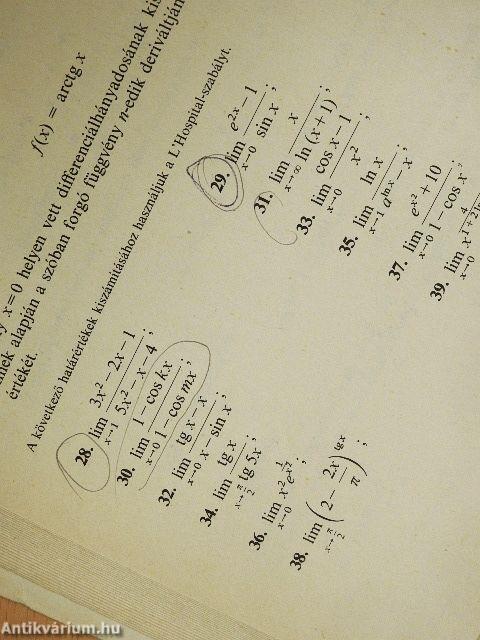 f(x) = arctg x
x = 0 helyen vett differenciálhányadosának
alapján a szóban forgó függvény n-edik
értékét.
A következő határértékek kiszámításához használjuk a L'Hospital-szabályt.
28. lim_{x→1} \frac{3x^2 - 2x - 1}{5x^2 - x - 4};
29. lim_{x→0} \frac{e^{2x} - 1}{sin x};
30. lim_{x→0} \frac{1 - cos kx}{1 - cos mx};
31. lim_{x→∞} \frac{x}{ln (x + 1)};
32. lim_{x→0} \frac{tg x - x}{x - sin x};
33. lim_{x→0} \frac{cos x - 1}{x^2};
34. lim_{x→\frac{π}{2}} \frac{tg x}{tg 5x};
35. lim_{x→1} \frac{ln x}{a^{ln x} - x};
36. lim_{x→0} x^2 e^{\frac{1}{x^2}};
37. lim_{x→0} \frac{e^{x^2} + 10}{1 - cos x};
38. lim_{x→\frac{π}{2}} (2 - \frac{2x}{π})^{tg x};
39. lim_{x→0}
Antikvárium.hu